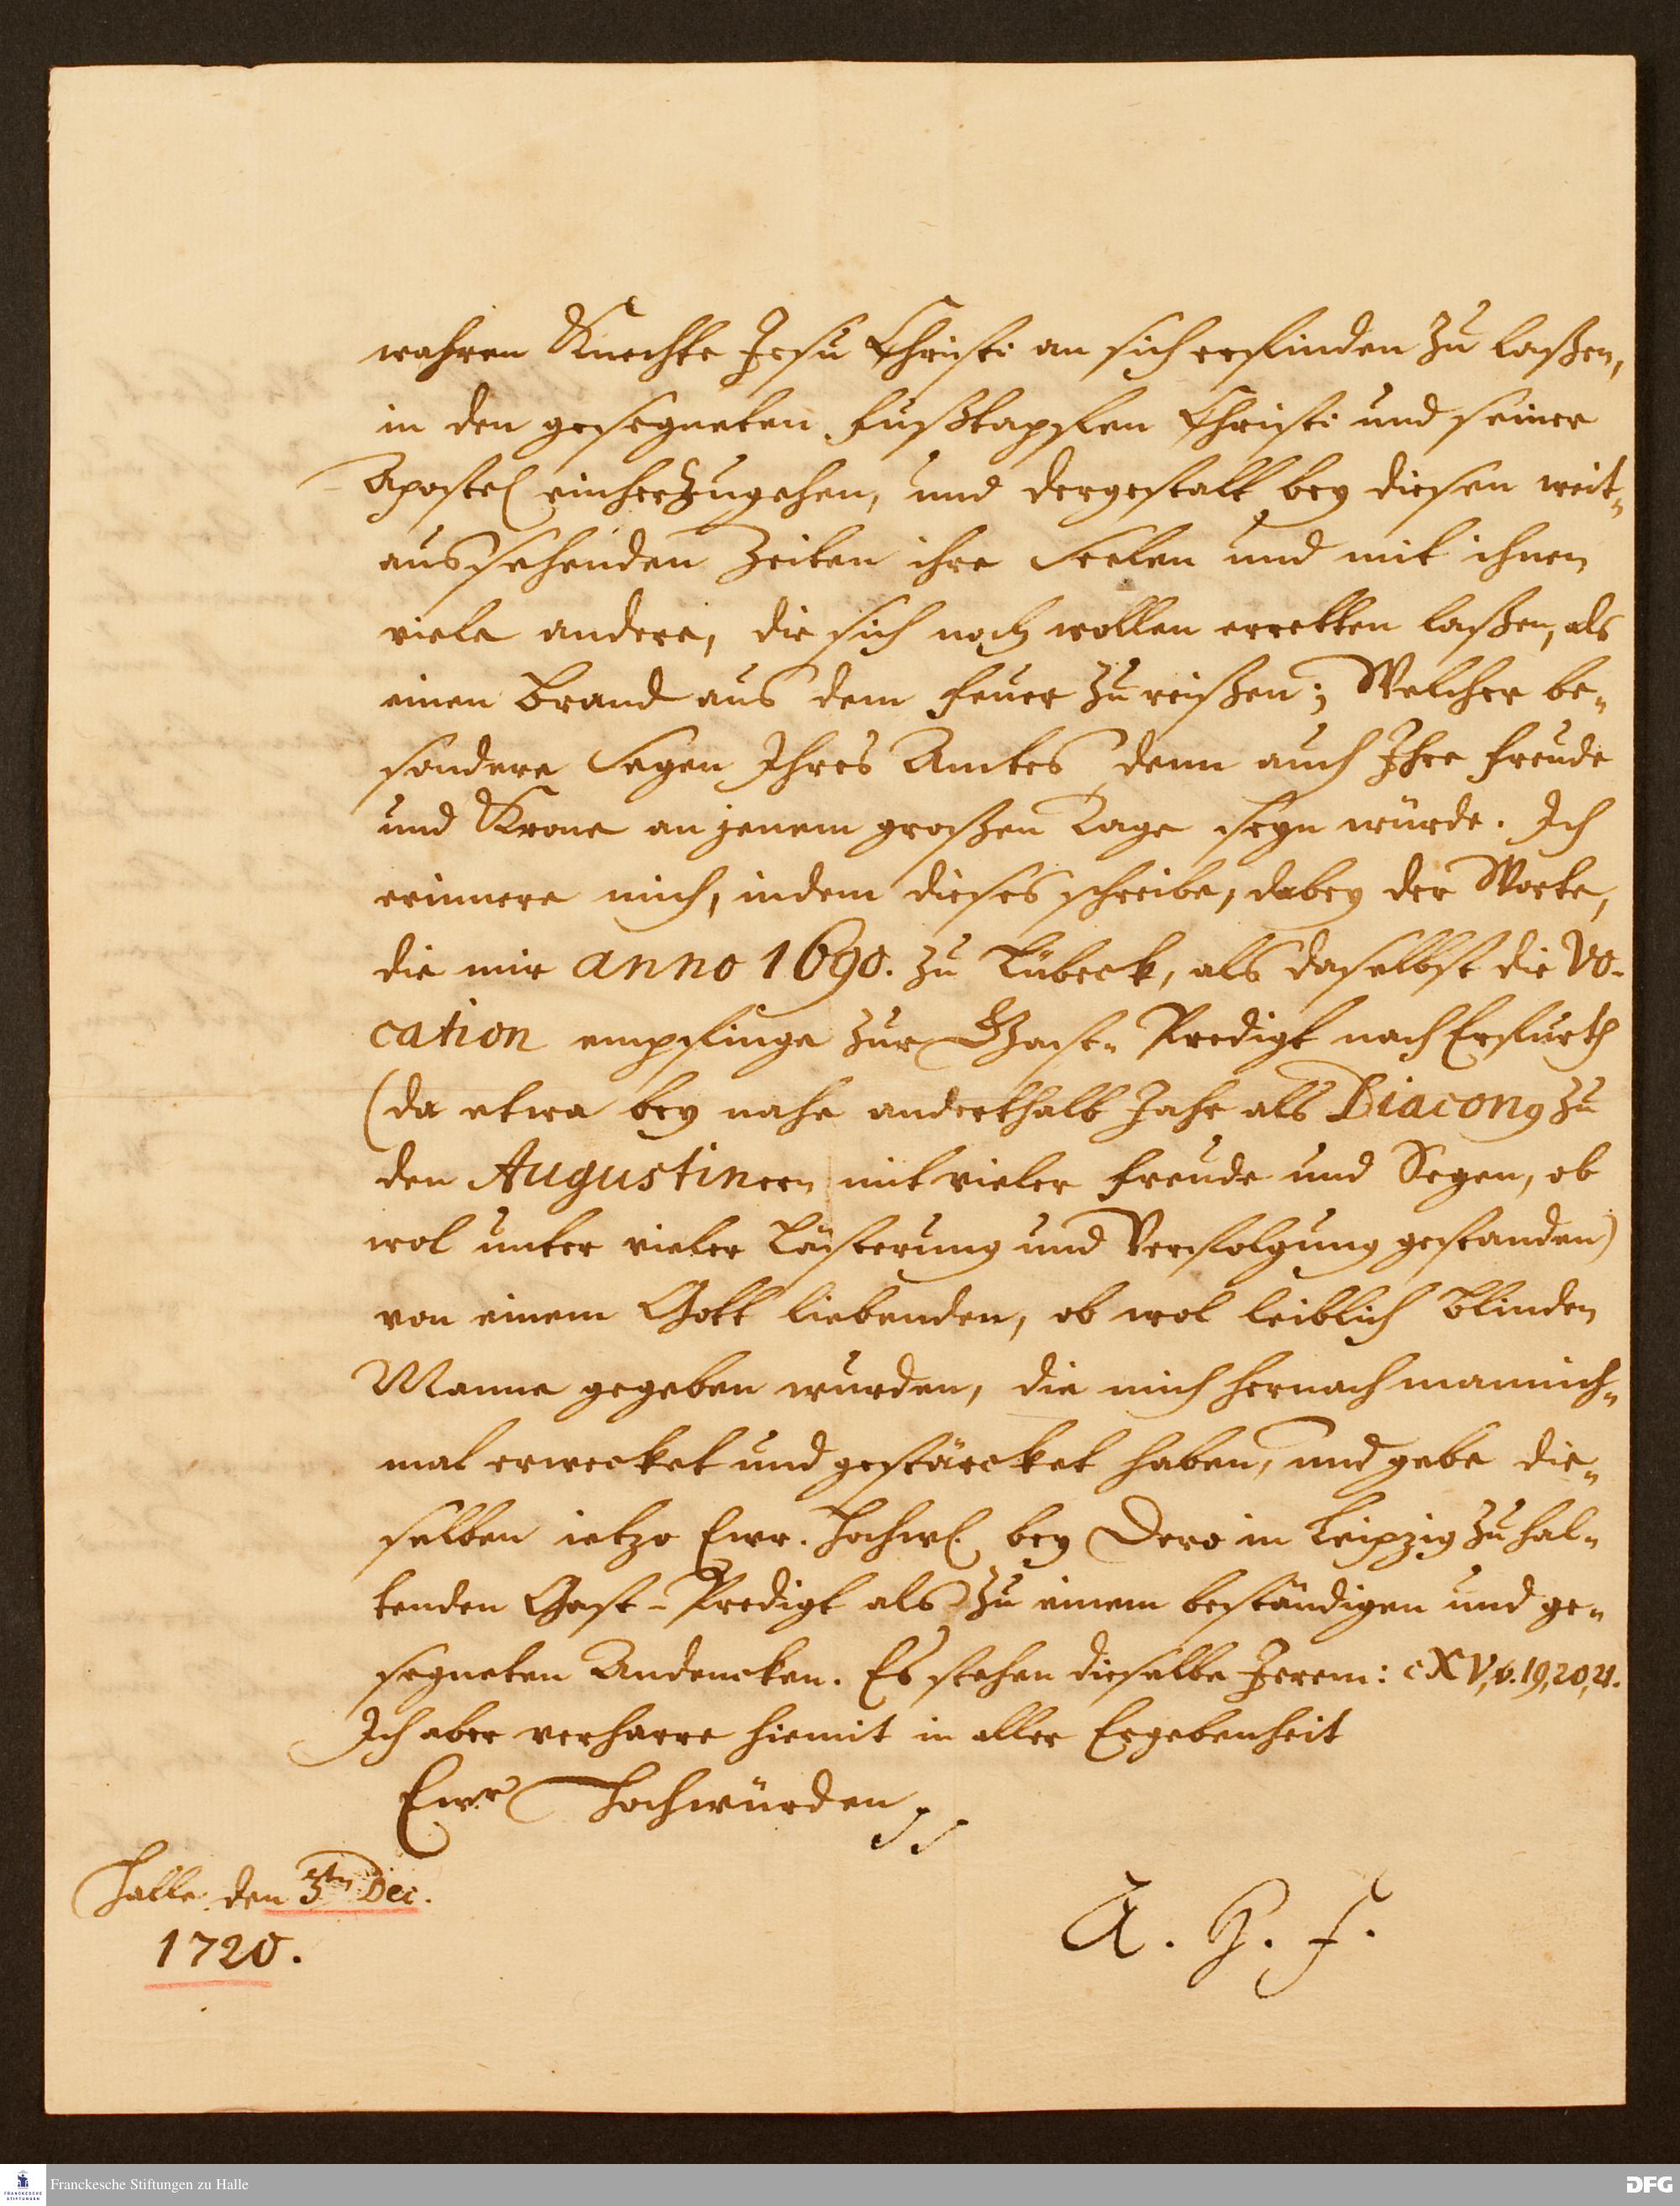 wahren Knechte Jesu Christi an sich erfinden zu laßen,
in den gesegneten Fußtapffen Christi und seiner
Apostel einherzugehen, und dergestalt bey diesen weit-
aussehenden Zeiten ihre Seelen und mit ihnen
viele andere, die sich noch wollen erretten laßen, als
einen Brand aus dem Feuer zu reißen; Welcher be-
sondere Segen Ihres Amtes denn auch Ihre Freude
und Krone an jenem großen Tage seyn würde. Ich
erinnere mich, indem dieses schreibe, dabey der Worte,
die mir anno 1690. zu Lübeck, als daselbst die Vo-
cation empfinge zur Gast-Predigt nach Erfurth
(da etwa bey nahe anderthalb Jahr als Diaconus zu
den Augustinern mit vieler Freude und Segen, ob
wol unter vieler Lästerung und Verfolgung gestanden)
von einem Gott liebenden, ob wol leiblich blinden
Manne gegeben wurden, die mich hernach mannich-
mal erwecket und gestärcket haben, und gebe die-
selben ietzo Ewr. Hochw. bey Dero in Leipzig zu hal-
tenden Gast-Predigt als zu einem beständigen und ge-
segneten Andencken. Es stehen dieselbe Jerem: c XV, v. 19, 20, 21.
Ich aber verharre hiemit in aller Ergebenheit
Ewr Hochwürden
Halle den 3ten Dec.
1720.
A. H. F.
Franckesche Stiftungen zu Halle
FRANCKESCHE
STIFTUNGEN
DFG